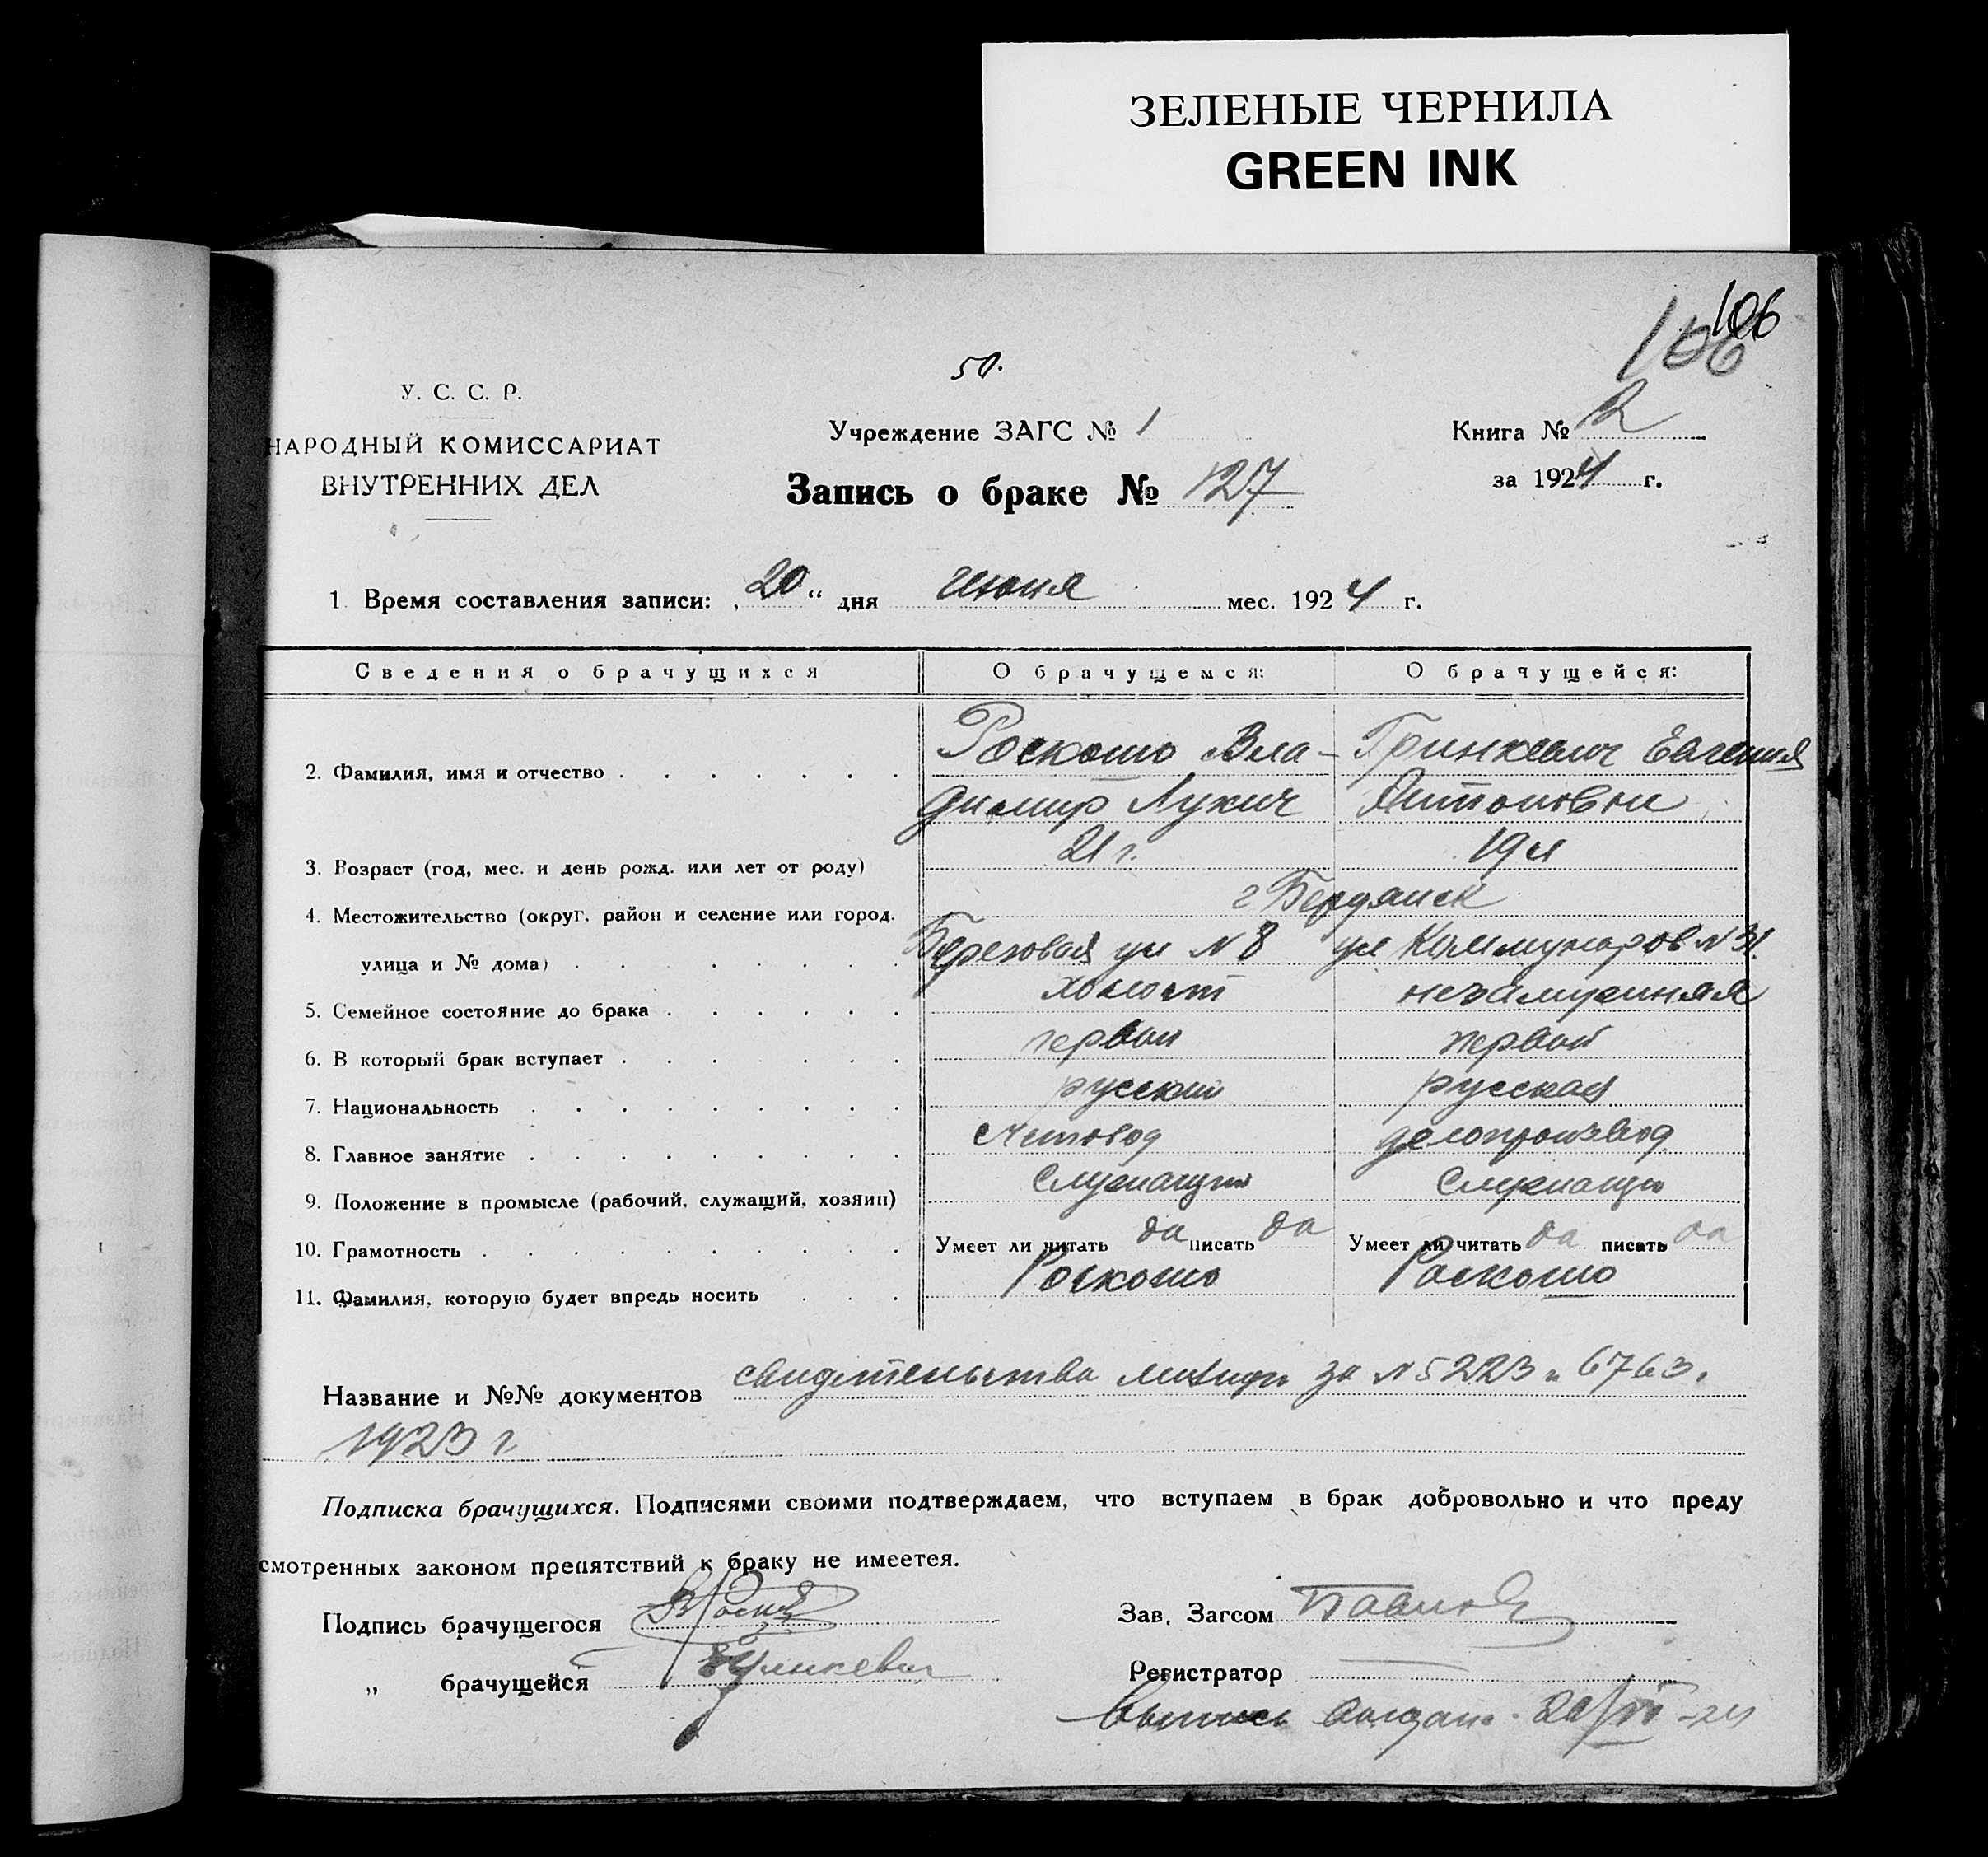 ЗЕЛЕНЫЕ ЧЕРНИЛА
GREEN INK
106
106
50.
У. С. С. Р.
НАРОДНЫЙ КОМИССАРИАТ
ВНУТРЕННИХ ДЕЛ
Учреждение ЗАГС № 1
Запись о браке № 127
Книга № 2
за 1924 г.
1. Время составления записи: „20“ дня июня мес. 1924 г.
Сведения о брачущихся О брачущемся: О брачущейся:
2. Фамилия, имя и отчество Роскошо Вла- Гринкевич Евгения
димир Лукич Антоновна
3. Возраст (год, мес. и день рожд. или лет от роду) 21 г. 19 л
4. Местожительство (округ, район и селение или город, г Бердянск
улица и № дома) Березовая ул N 8 ул Коммунаров N 31.
5. Семейное состояние до брака холост незамужняя
6. В который брак вступает первый первый
7. Национальность русский русская
8. Главное занятие счетовод делопроизвод.
9. Положение в промысле (рабочий, служащий, хозяин) служащий служащая
10. Грамотность Умеет ли читать да писать да Умеет ли читать да писать да
11. Фамилия, которую будет впредь носить Роскошо Роскошо
Название и №№ документов свидетельства милиции за N 5223 и 6763.
1923 г
Подписка брачущихся. Подписями своими подтверждаем, что вступаем в брак добровольно и что преду
смотренных законом препятствий к браку не имеется.
Подпись брачущегося
„ брачущейся
Зав. Загсом Павлов
Регистратор
Выпись выдана.